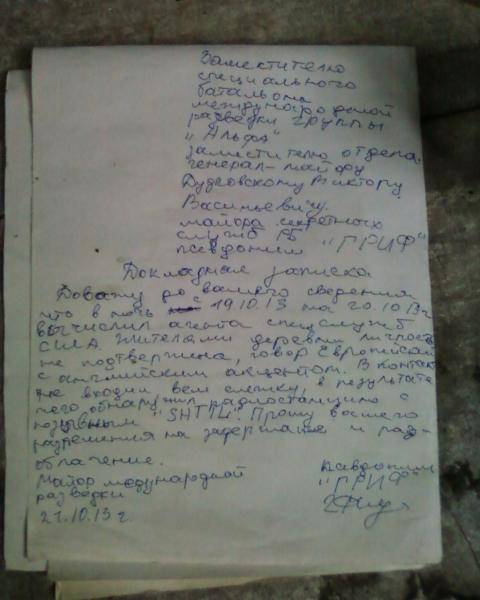 Заместителю
специального
батальона
международной
разведки группы
"Альфа"
заместителю отдела
генерал-майору
Дудковскому Виктору
Васильевичу
майора секретных
служб РБ
псевдоним "ГРИФ"
Докладная записка
Довожу до вашего сведения
что в ночь с 19.10.13 на 20.10.13г
вычислил агента спецслужб
США жителями деревни личность
не подтвержена, говор Европейский
с английским акцентом. В контакт
не входил вел слежку, в результате
чего обнаружил радиостанцию с
позывным "SHTIL". Прошу вашего
разрешения на задержание и раз-
облачение.
Майор международной
разведки
псевдоним
"ГРИФ"
21.10.13 г.